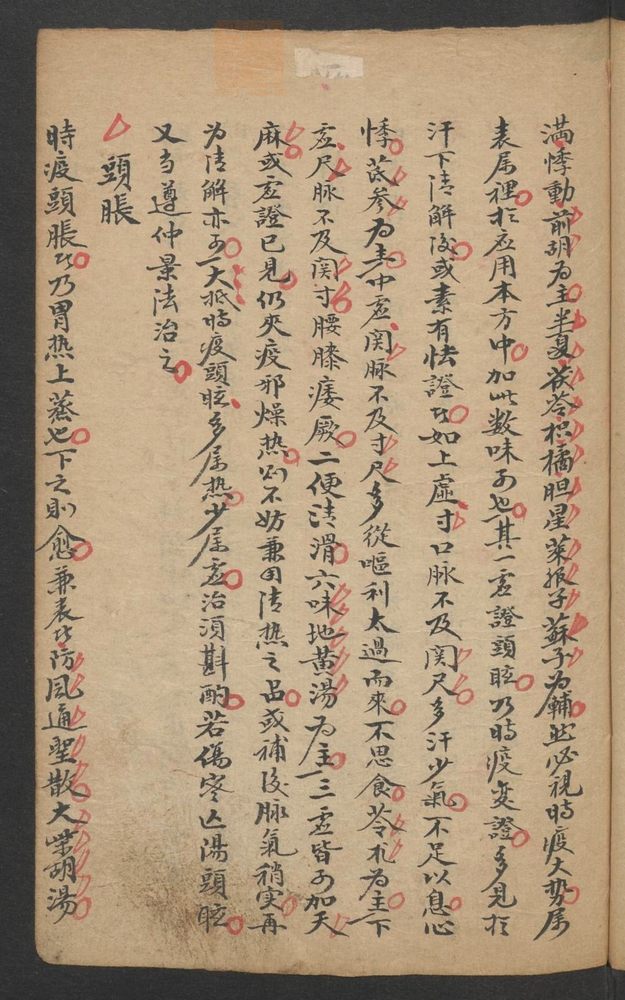 满悸動前胡为主半夏茯苓枳橘胆星萊菔子蘇子为輔然必視時疫大势屬
表屬裡於应用本方中加此数味可也其一虚證頭眩乃時疫变證多見於
汗下清解後或素有怯證者如上虛寸口脉不及関尺多汗少氣不足以息心
悸芪参为主中虚関脉不及寸尺多從嘔利太過而來不思食苓朮为主下
虚尺脉不及関寸腰膝痿厥二便清滑六味地黄湯为主三虚皆可加天
麻或虚證已見仍夾疫邪燥热則不妨兼用清热之品或補後脉氣稍实再
为清解亦可大抵時疫頭眩多属热少属虚治須斟酌若傷寒亡陽頭眩
又当遵仲景法治之
頭脹
時疫頭脹者乃胃热上蒸也下之則愈兼表者防風通聖散大柴胡湯